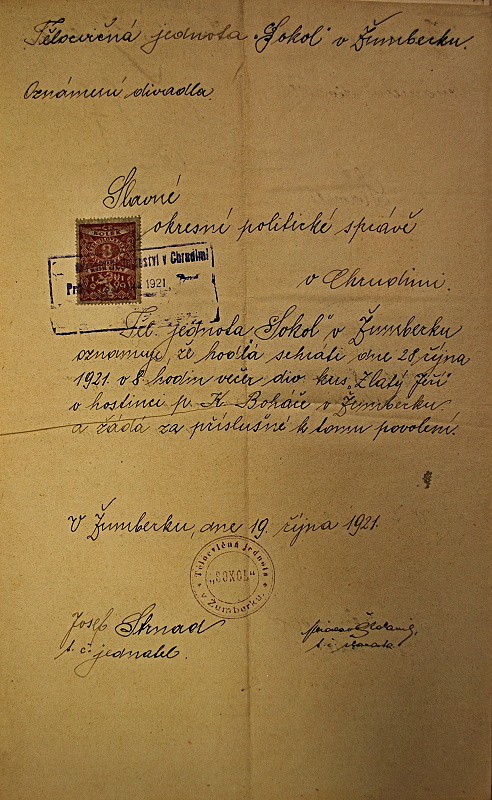 Tělocvičná jednota "Sokol" v Žumberku.
Oznámení divadla.
Slavné
okresné politické správě
v Chrudimi.
ství v Chrudimi
1921
Těl. jednota "Sokol" v Žumberku
oznamuje, že hodlá sehráti dne 28. října
1921 v 8 hodin večer div. kus "Zlatý Jiří"
v hostinci p. K. Boháče v Žumberku
a žádá za příslušné k tomu povolení.
V Žumberku, dne 19. října 1921.
Tělocvičná jednota
"SOKOL"
v Žumberku.
Josef Strnad
t. č. jednatel.
t. č.